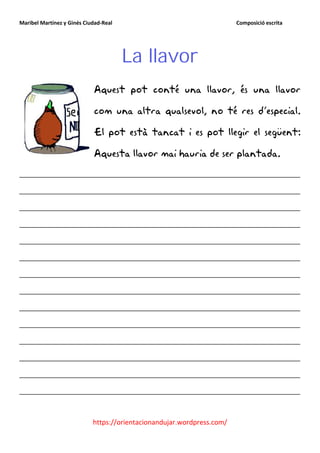 Maribel Martínez y Ginés Ciudad-Real Composició escrita
La llavor
Aquest pot conté una llavor, és una llavor
com una altra qualsevol, no té res d'especial.
El pot està tancat i es pot llegir el següent:
Aquesta llavor mai hauria de ser plantada.
https://orientacionandujar.wordpress.com/